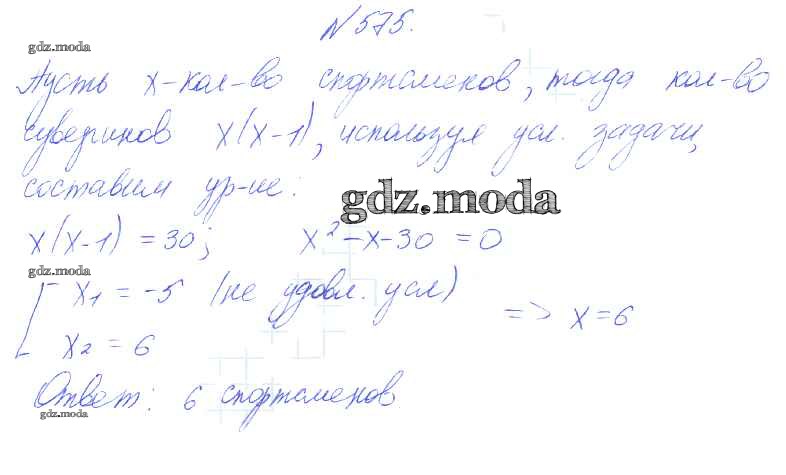 №575.
gdz.moda
Пусть x-кол-во спортсменов, тогда кол-во
сувениров x(x-1), используя усл. задачи,
составим ур-ие:
gdz.moda
x(x-1) = 30; x²-x-30 = 0
gdz.moda
[ x₁ = -5 (не удовл. усл)
x₂ = 6 => x=6
Ответ: 6 спортсменов
gdz.moda